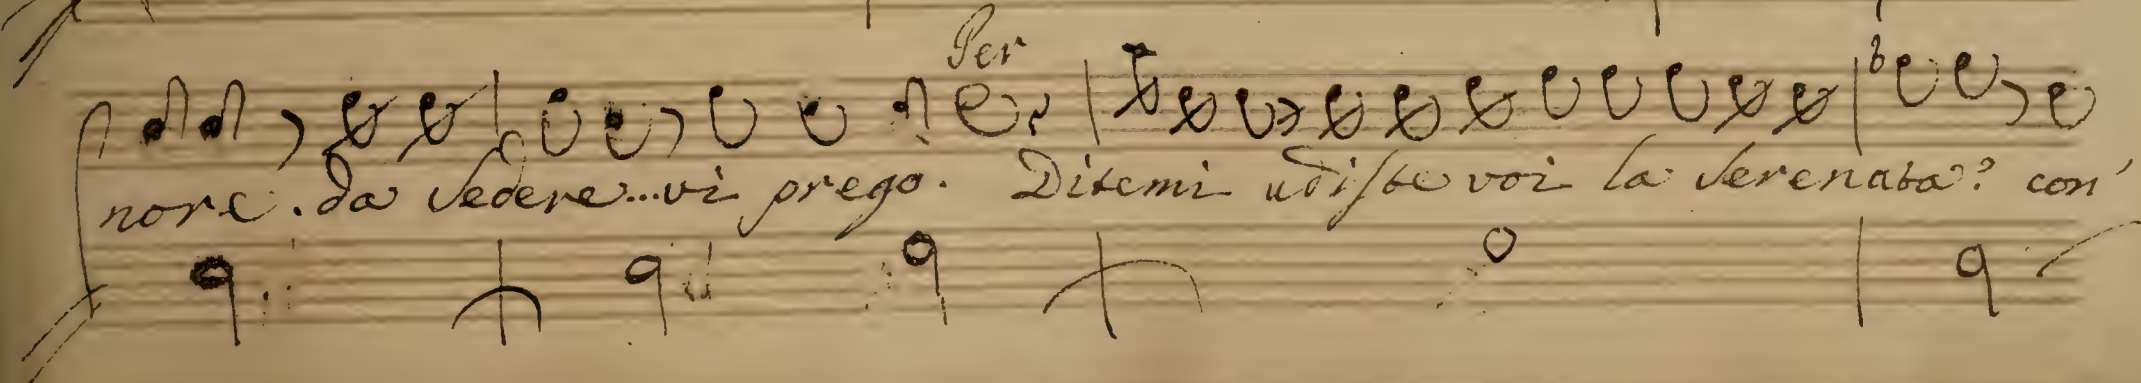 Per
nore. da vedere...vi prego. Ditemi udiste voi la serenata? con'